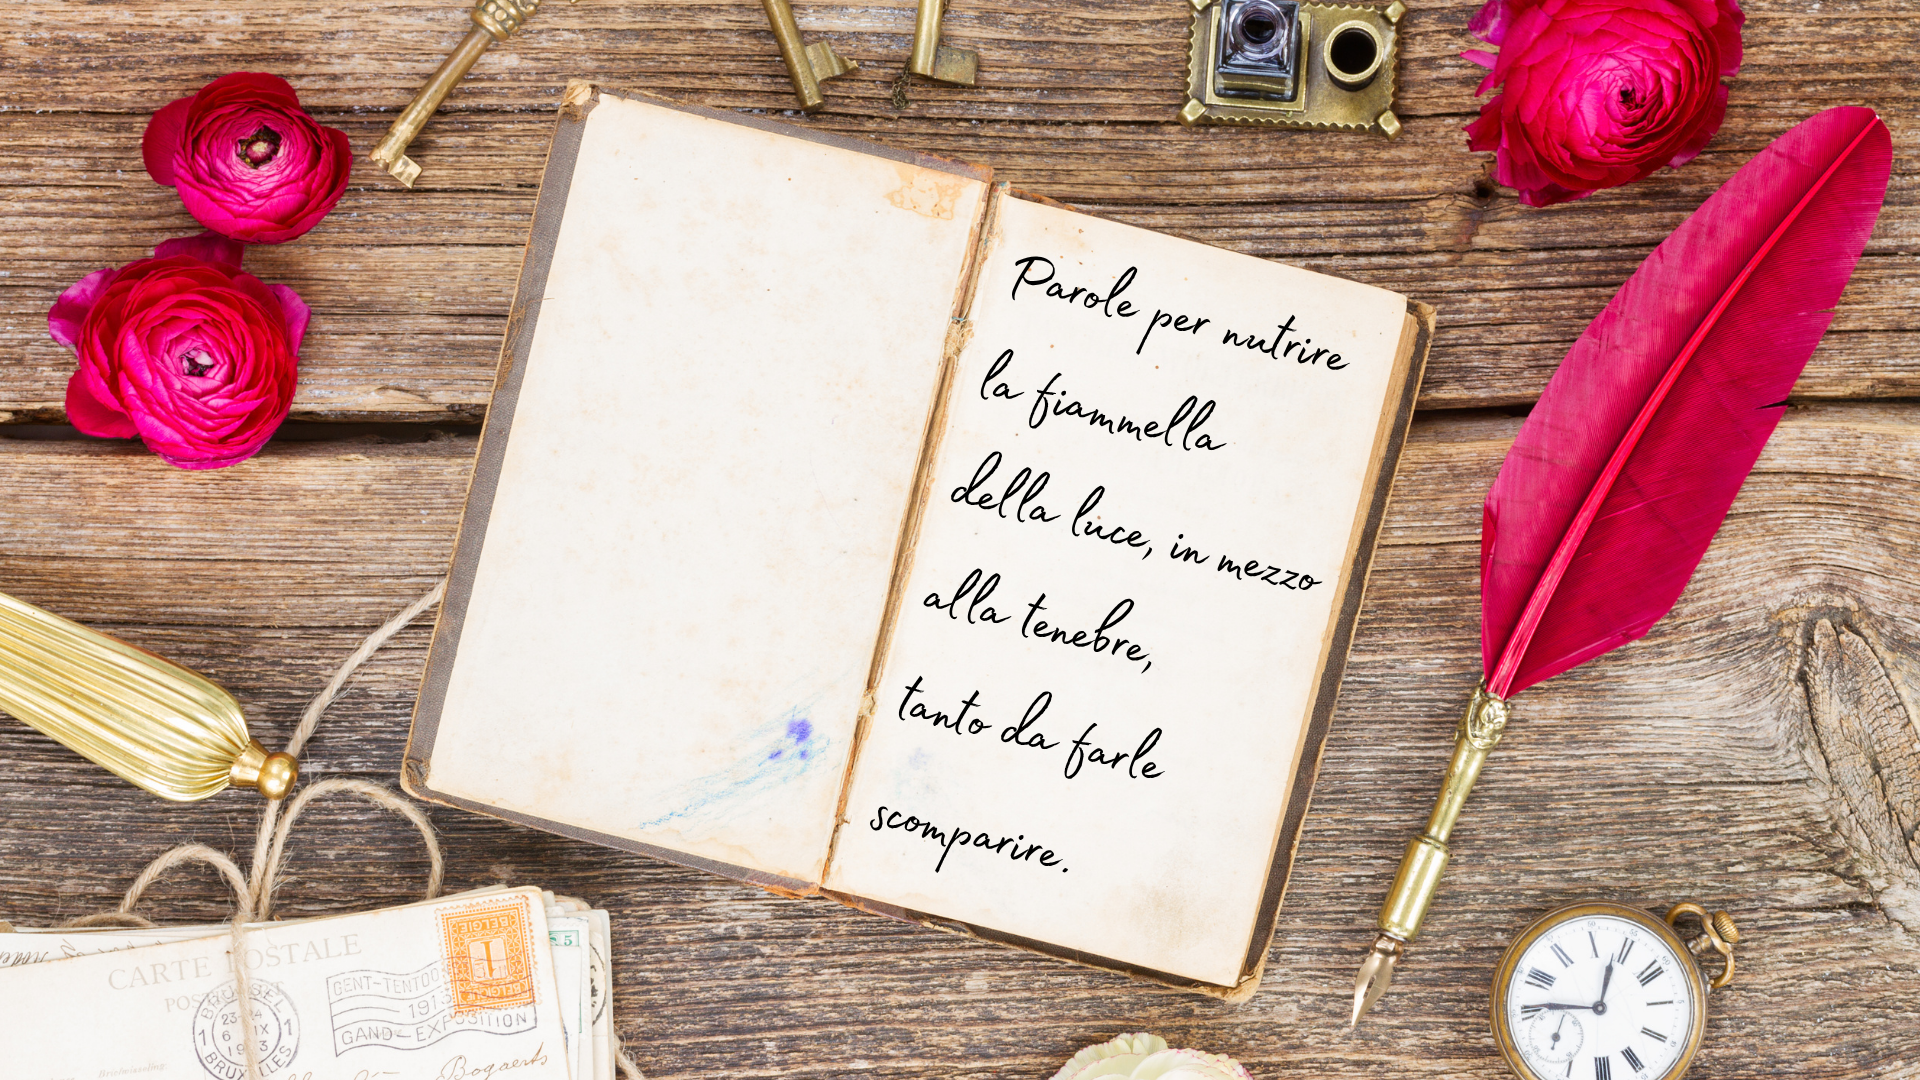 Parole per nutrire
la fiammella
della luce, in mezzo
alla tenebre,
tanto da farle
scomparire.
CARTE POSTALE
GENT-TENTOO
1913
GAND-EXPOSITION
BRUXELLES
1 1
6 IX
1913
BELGIE
1
BELGIQUE
5
Bogaerts